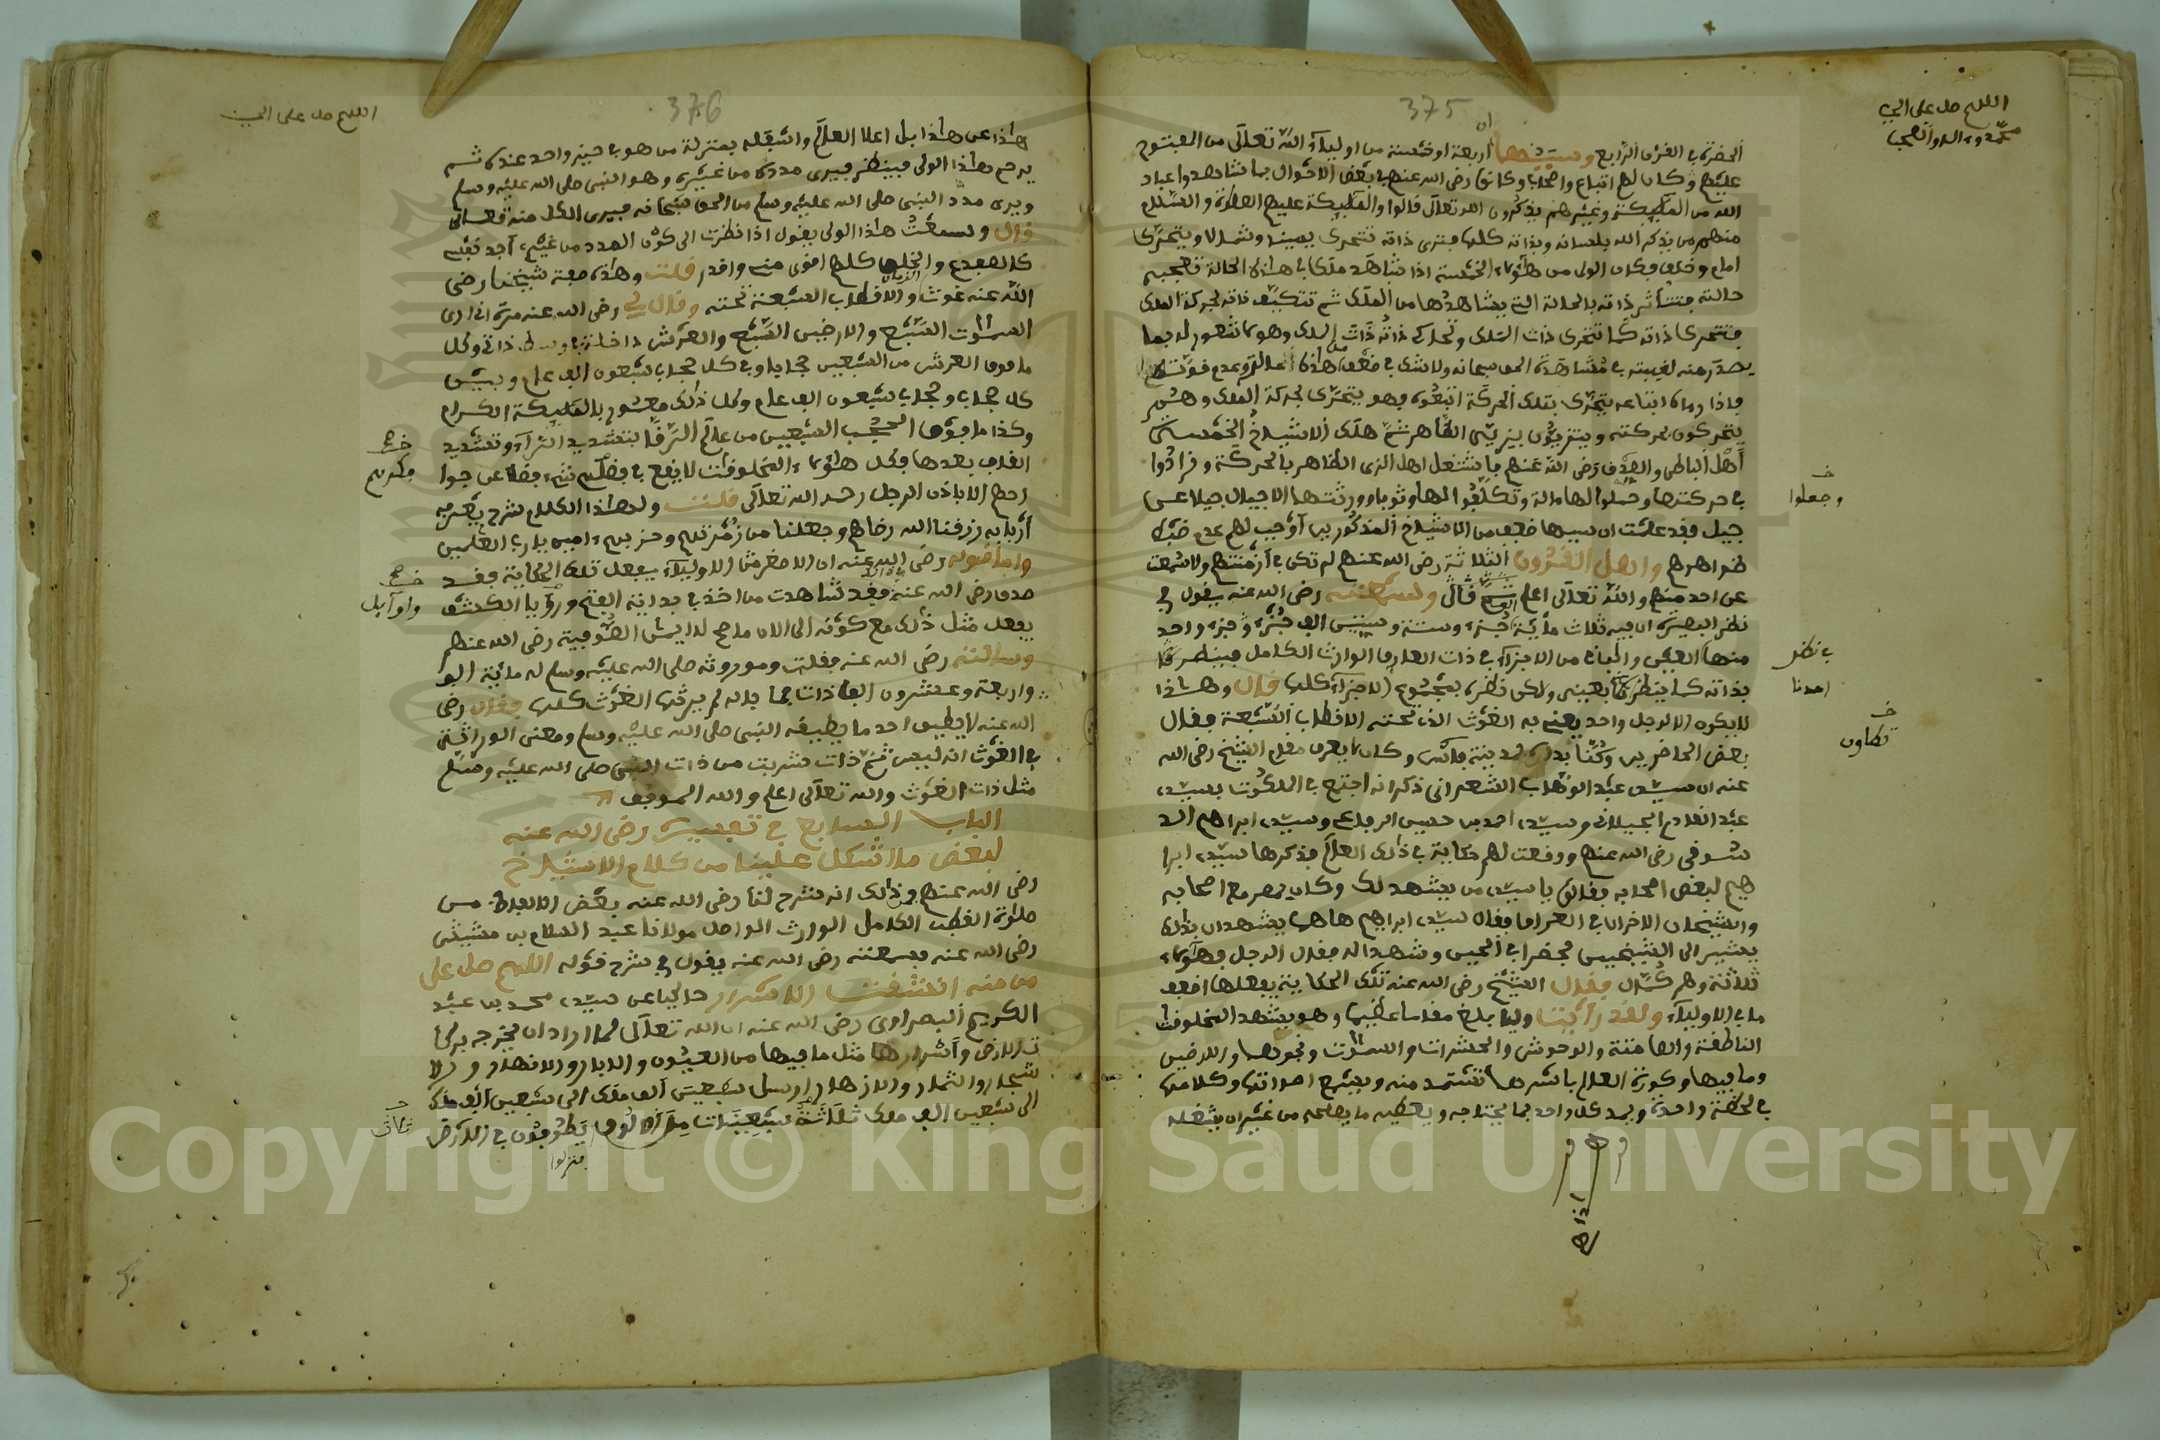 اللهم صل على النبي
محمد وءاله وأصحابه
375
الحضرة في القرن الرابع وسببها ان أربعة أو خمسة من أولياء الله تعالى من المفتوح
عليهم وكان لهم اتباع وأصحاب وكانوا رضي الله عنهم في بعض الاحوال ربما شاهدوا عباد
الله من الملايكة وغيرهم يذكرون الله تعالى قالوا والملايكة عليهم الصلاة والسلام
منهم من يذكر الله بلسانه وبذاته كلها فترى ذاته تتحرك يمينا وشمالا ويتحرك
امام وخلف فكان الولي من هؤلاء الخمسة اذا شاهد ملكا في هذه الحالة تعجبه
حالته فتتأثر ذاته بالحالة التي يشاهدها من الملك ثم تتكيف ذاته بحركة الملك
فتتحرك ذاته كما تتحرك ذات الملك وتحكي ذاته ذات الملك وهو لا شعور له بما
يصدر منه لغيبته في مشاهدة الحق سبحانه ولا شك في ضعف من هذه حالته وعدم قوته
فاذا رءاه اتباعه يتحرك بتلك الحركة اتبعوه فهو يتحرك لحركة الملك وهم
يتحركون لحركته ويتزيون بزيه الظاهر ثم هلك الاشياخ الخمسة
أهل الباطن والصدق رضي الله عنهم فاشتغل اهل الزي الظاهر بالحركة وزادوا
في حركتها وجعلوا لها ءالة وتكلفوا لها وتوارثتها الاجيال جيلا عن
جيل فقد علمت ان سببها ضعف من الاشياخ المذكورين أوجب لهم عدم ضبط
ظواهرهم وأهل القرون الثلاثة رضي الله عنهم لم تكن في أزمنتهم ولا سمعت
عن احد منهم والله تعالى اعلم قال وسمعته رضي الله عنه يقول في
نظر البصيرة ان فيه ثلاث مائة جزء وستة وستين الف جزء وجزء واحد
منها في العين والباقي من الاجزاء في ذات العارف الوارث الكامل فينظر
بذاته كما ينظر بعينى ولكن نظره بمجموع الاجزاء كلها قال وهذا
لا يكون الا لرجل واحد يعني به الغوث الذى تحته الاقطاب السبعة فقال
بعض الحاضرين وكنا بمدينة فاس وكان لا يعرف مقام الشيخ رضي الله
عنه ان سيدي عبد الوهاب الشعراني ذكر انه اجتمع في الملكوت بسيدي
عبد القادر الجيلاني وسيدي احمد بن حسين الرفاعي وسيدي ابراهيم الد
سوقي رضي الله عنهم ووقعت لهم حكاية في ذلك العالم فذكرها سيدي ابرا
هيم لبعض اصحابه فقالوا يا سيدي من يشهد لك وكان بمصر مع اصحابه
والشيخان الاخران في العراق فقال سيدي ابراهيم ها هما يشهدان بذلك
يشير الى الشيخين فحضرا في الحين وشهدا له فقال الرجل فهؤلاء
ثلاثة وهم كمال فقال الشيخ رضي الله عنه تلك الحكاية يفعلها اضعف
ما في الاولياء ولقد رأيت وليا بلغ مقاما عظيما وهو يشهد المخلوقات
الناطقة والصامتة والوحوش والحشرات والسموات ونجومها والارضين
وما فيها وكورة العالم باسرها تستمد منه ويسمع اصواتها وكلامها
في لحظة واحدة ويمد كل واحد بما يحتاجه ويعطيه ما يصلحه من غير ان يشغله
وجعلوا
خ
اللهم صل على النبي
376
هذا عن هذا بل اعلا العالم واسفله بمنزلة من هو في حيز واحد عنده ثم
يرجع هذا الولي فينظر فيرى مدده من غيره وهو النبي صلى الله عليه وسلم
ويرى مدد النبي صلى الله عليه وسلم من الحق سبحانه فيرى الكل منه تعالى
قال وسمعت هذا الولي يقول اذا نظرت الى كون المدد من غيري أجد نفسي
كالضفدع والخلق كلهم اقوى مني واقدر قلت وهذه صفة شيخنا رضي
الله عنه غوث الاولياء والاقطاب السبعة تحته وقال لي رضي الله عنه مرة اني ارى
السموات السبع والارضين السبع والعرش داخلة في وسط ذاتي وكل
ما فوق العرش من السبعين حجابا وفي كل حجاب سبعون الف عام وبين
كل حجاب وحجاب سبعون الف عام وكل ذلك معمور بالملايكة الكرام
وكذا ما فوق الحجب السبعين من عالم الرقا بتشديد الراء وتشديد
القاف بعدها فكل هؤلاء المخلوقات لا يقع في فكرهم شيء فضلا عن جوا
رحهم الا باذن الرجل رحمه الله تعالى قلت ولهذا الكلام شرح يعرفه
أربابه رزقنا الله رضاهم وجعلنا من زمرتهم وحزبهم ءامين يا رب العلمين
وأما قوله رضي الله عنه ان الاصغر من الاولياء يفعل تلك الحكاية فقد
صدق رضي الله عنه فقد شاهدت من اخذ في بداية الفتح ورؤيا الكشف
يفعل مثل ذلك مع كونه الى الان ما صح له ايمان الصوفية رضي الله عنهم
وسالته رضي الله عنه فقلت وموروثه صلى الله عليه وسلم له مائة الف
واربعة وعشرون الف ذات فما باله لم يرثها الغوث كلها فقال رضي
الله عنه لا يطيق احد ما يطيقه النبي صلى الله عليه وسلم ومعنى الوراثة
في الغوث انه ليس ثم ذات شربت من ذات النبي صلى الله عليه وسلم
مثل ذات الغوث والله تعالى اعلم والله الموفق
الباب السابع في تفسيره رضي الله عنه
لبعض ما اشكل علينا من كلام الاشياخ
رضي الله عنهم فمن ذلك انه شرح لنا رضي الله عنه بعض الالفاظ من
صلوة القطب الكامل الوارث الواصل مولانا عبد السلام بن مشيش
رضي الله عنه فسمعته رضي الله عنه يقول في شرح قوله اللهم صل على
من منه انشقت الاسرار حاكيا عن سيدي محمد بن عبد
الكريم البصراوي رضي الله عنه ان الله تعالى لما اراد ان يخرج بركا
ت الارض وأسرارها مثل ما فيها من العيون والابار والانهار والا
شجار والثمار والازهار ارسل سبعين ألف ملك الى سبعين ألف ملك
الى سبعين الف ملك ثلاثة سبعينات من الالوف فنزلوا يطوفون في الارض
خ
Copyright © King Saud University